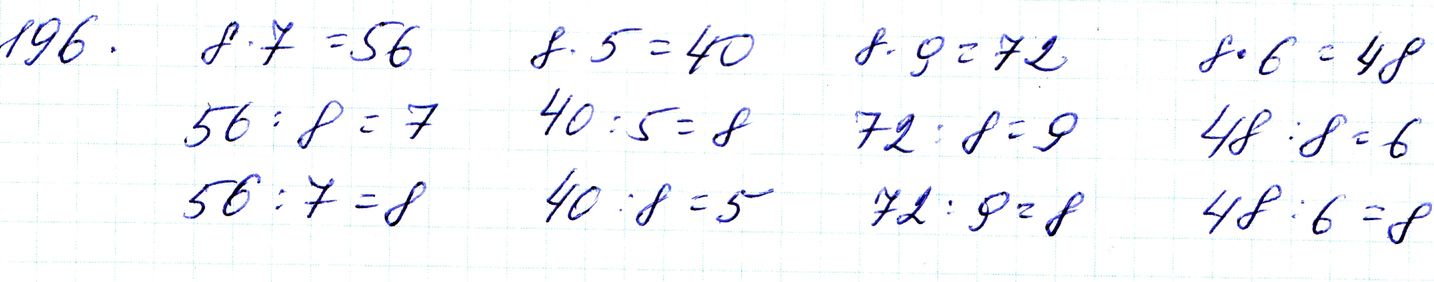 196. 8·7=56 8·5=40 8·9=72 8·6=48
56:8=7 40:5=8 72:8=9 48:8=6
56:7=8 40:8=5 72:9=8 48:6=8